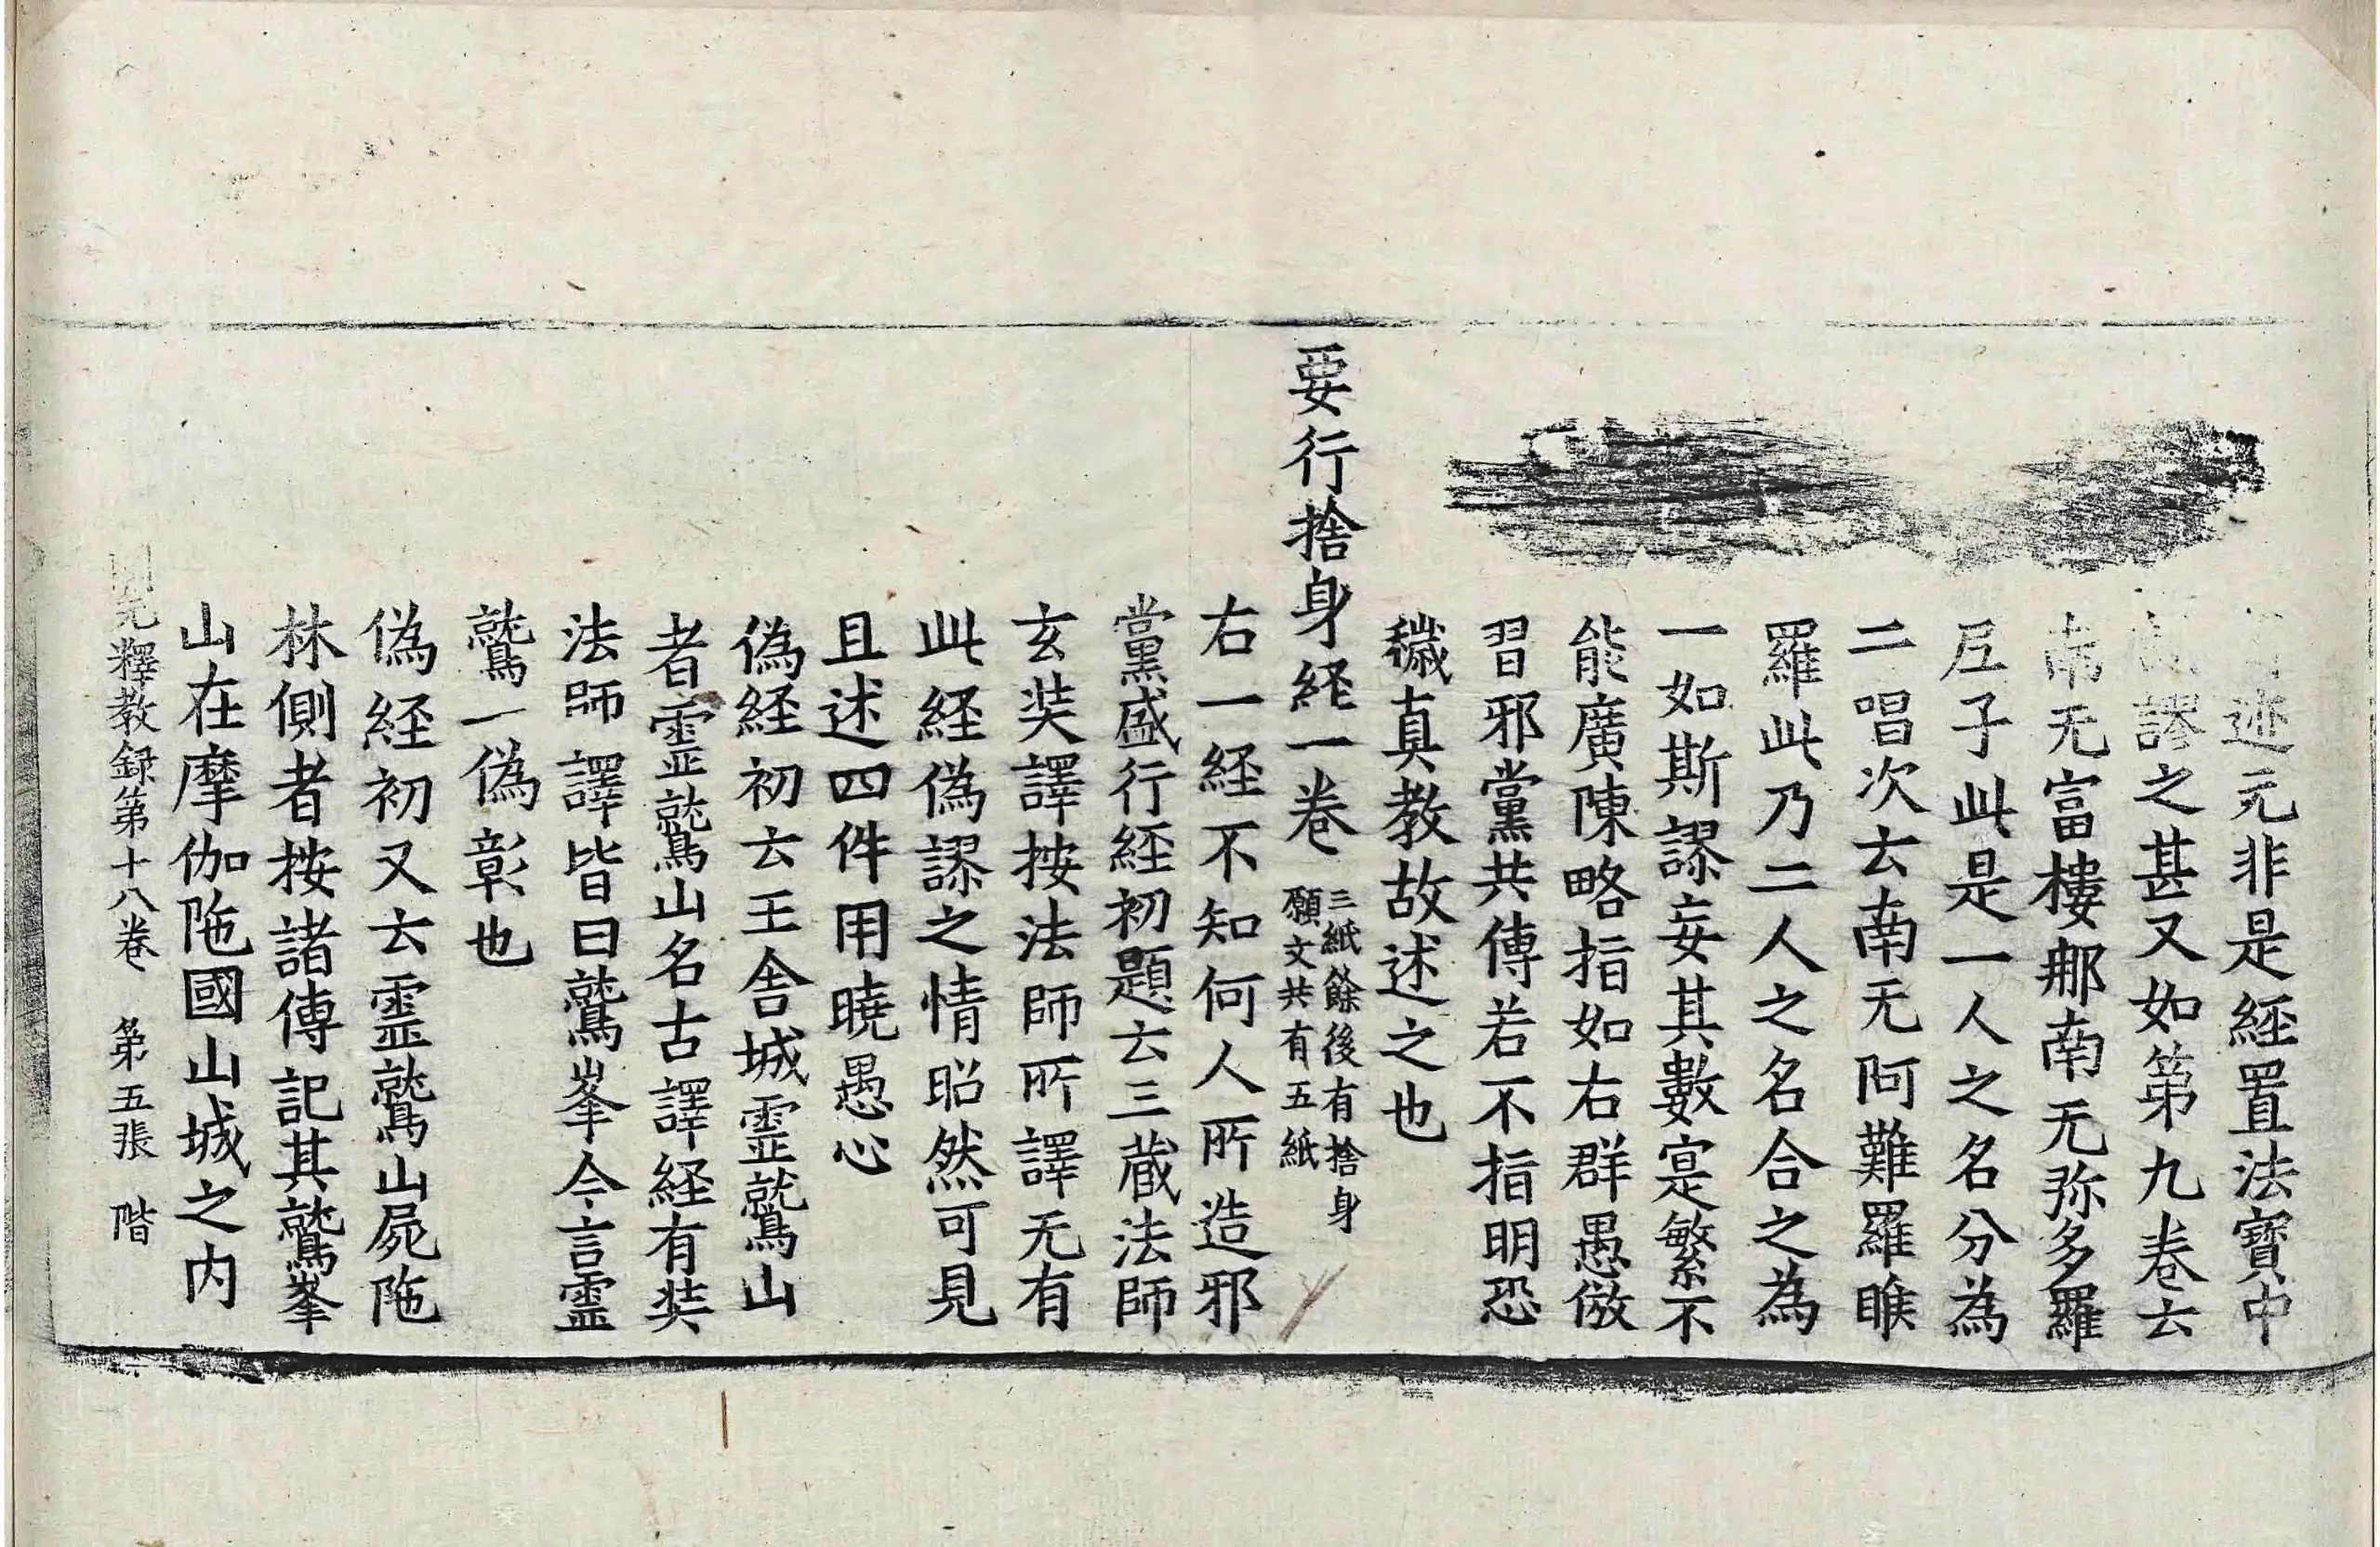 迹元非是經置法寶中
謬之甚又如第九卷云
南无富樓那南无弥多羅
𡰱子此是一人之名分為
二唱次云南无阿難羅睺
羅此乃二人之名合之為
一如斯謬妄其數寔繁不
能廣陳略指如右群愚倣
習邪黨共傳若不指明恐
穢真教故述之也
要行捨身経一卷 三紙餘後有捨身
願文共有五紙
右一経不知何人所造邪
黨盛行経初題云三蔵法師
玄奘譯按法師所譯无有
此経偽謬之情昭然可見
且述四件用曉愚心
偽経初云王舍城霊鷲山
者霊鷲山名古譯経有奘
法師譯皆曰鷲峯今言霊
鷲一偽彰也
偽経初又云霊鷲山屍陁
林側者按諸傳記其鷲峯
山在摩伽陁國山城之内
開元釋教録第十八卷 第五張 階